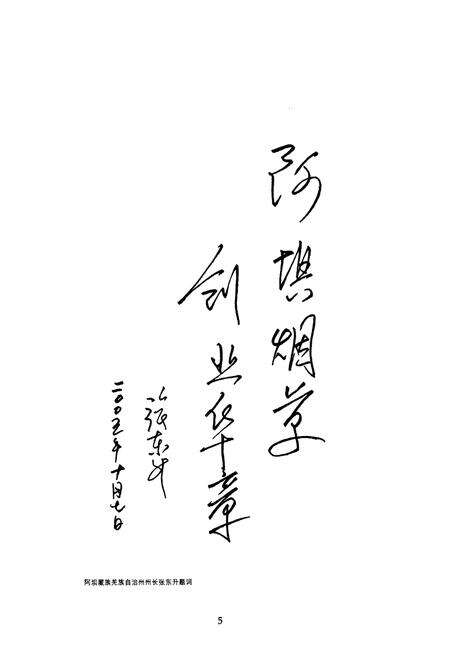 阿坝烟草
创业华章
张东升
二〇〇五年十月七日
阿坝藏族羌族自治州州长张东升题词
5